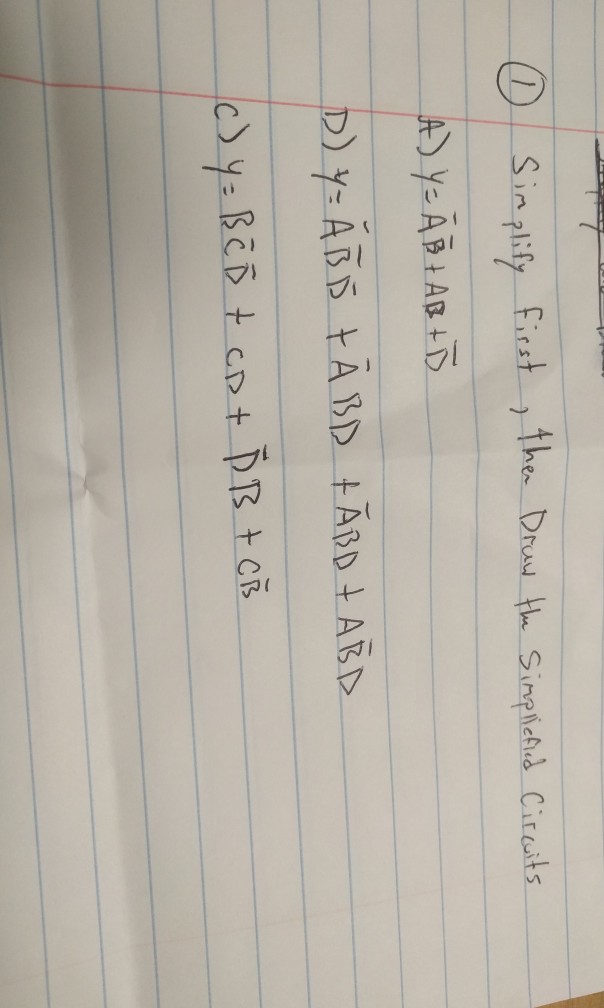 ① Simplify first, then Draw the Simplified Circuits
A) y = A̅B̅ + AB + D̅
D) y = A̅B̅D̅ + A̅BD + A̅BD + AB̅D
C) y = BC̅D̅ + CD + D̅B + CB̅